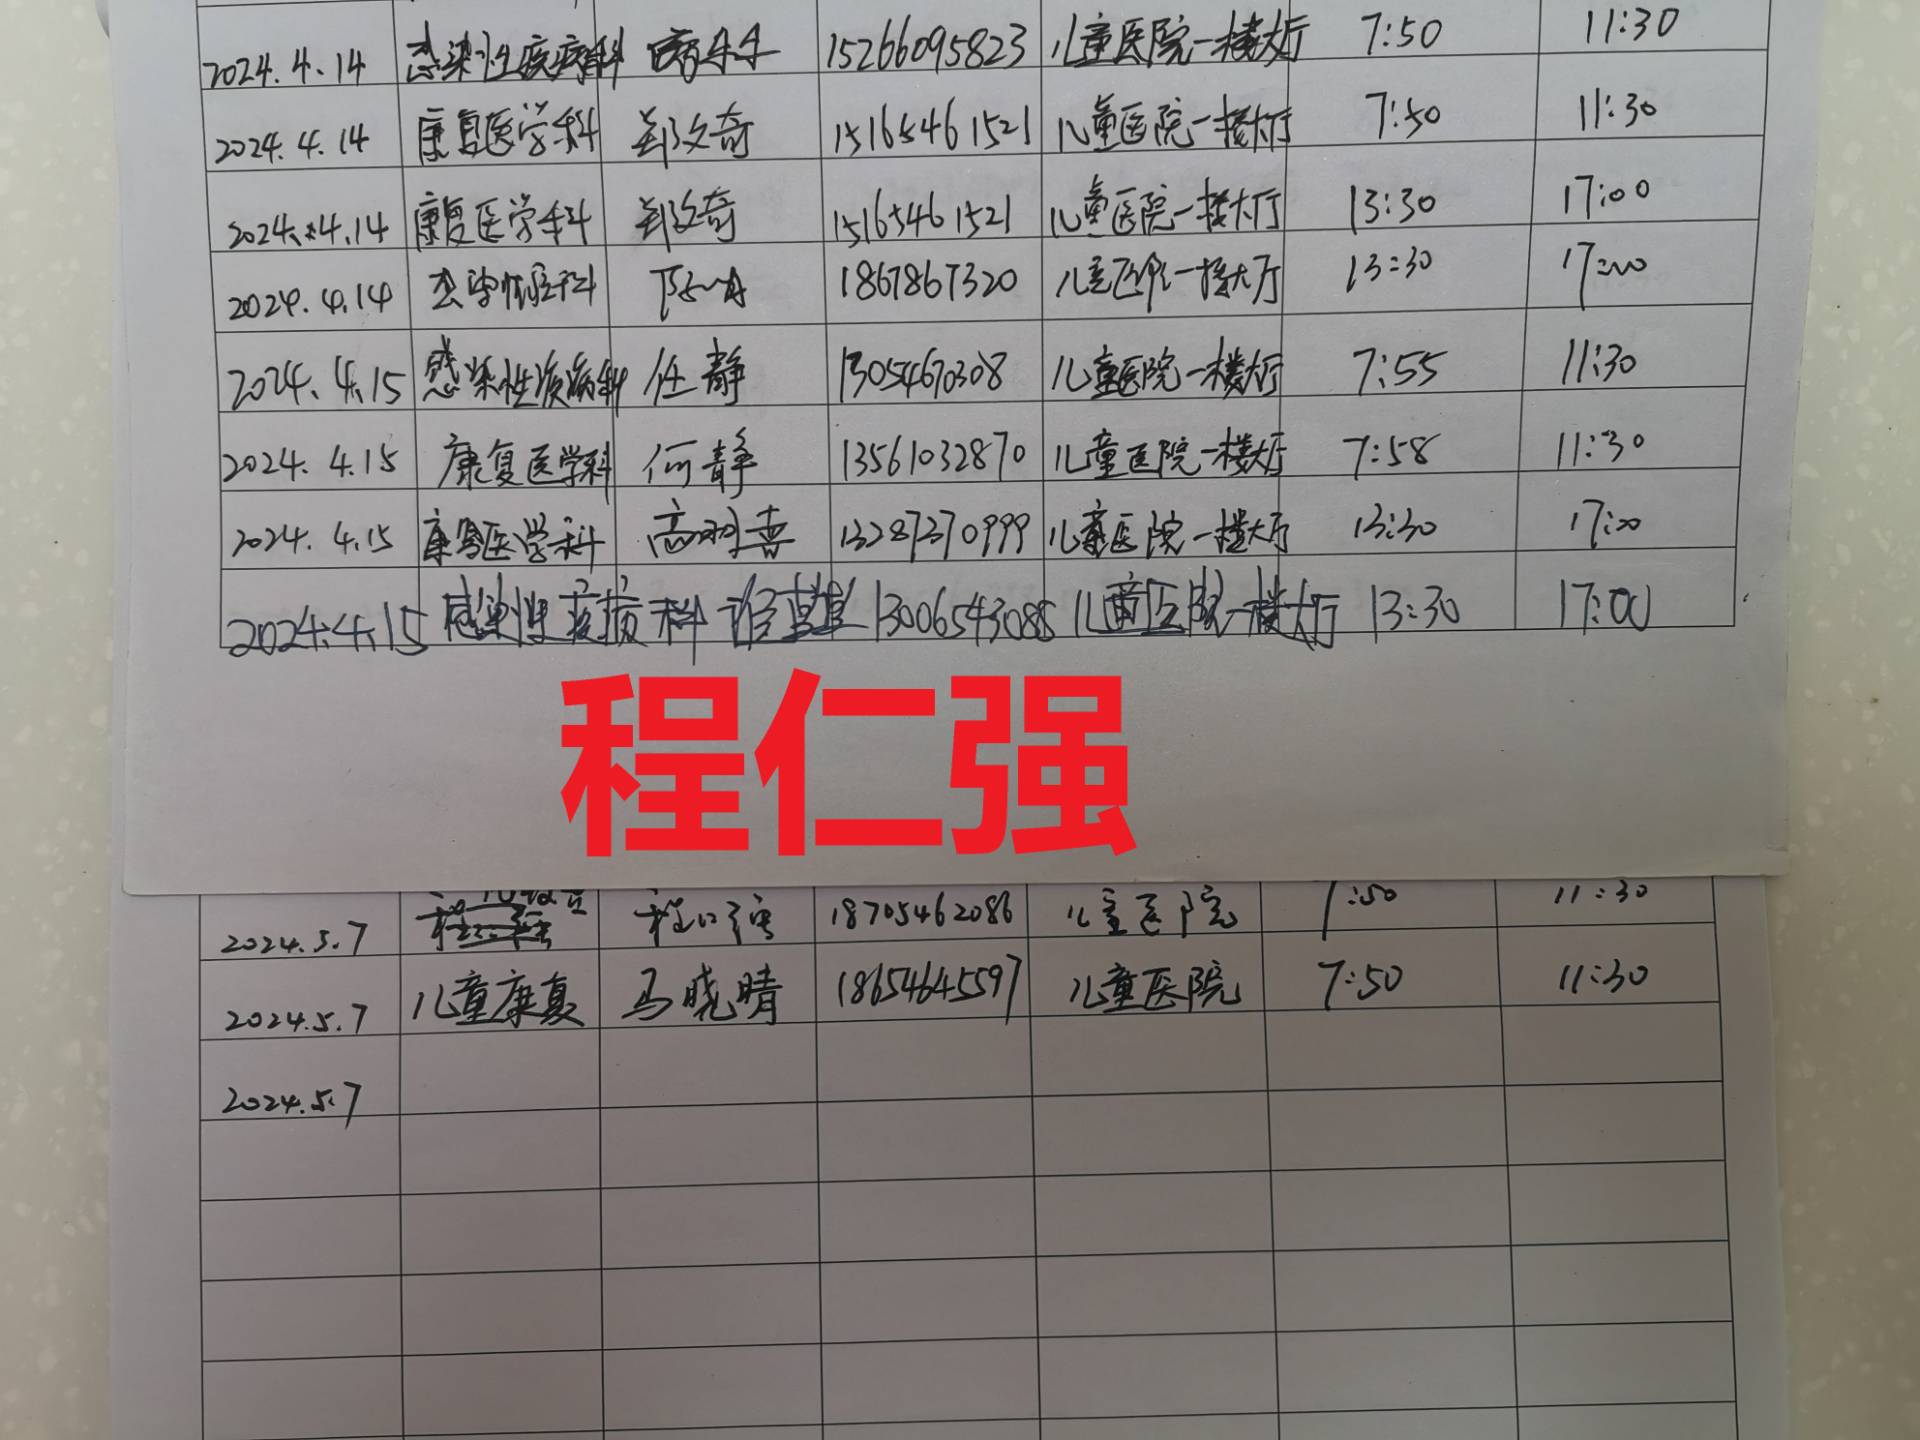 2024.4.14 感染性疾病科 15266095823 儿童医院一楼大厅 7:50 11:30
2024.4.14 康复医学科 郑文奇 15165461521 儿童医院一楼大厅 7:50 11:30
2024.4.14 康复医学科 郑文奇 15165461521 儿童医院一楼大厅 13:30 17:00
2024.4.14 1867867320 儿童医院一楼大厅 13:30 17:00
2024.4.15 感染性疾病科 任静 13054670308 儿童医院一楼大厅 7:55 11:30
2024.4.15 康复医学科 何静 13561032870 儿童医院一楼大厅 7:58 11:30
2024.4.15 康复医学科 13287370999 儿童医院一楼大厅 13:30 17:00
2024.4.15 感染性疾病科 13006543085 儿童医院一楼大厅 13:30 17:00
程仁强
2024.5.7 程仁强 18705462086 儿童医院 7:50 11:30
2024.5.7 儿童康复 马晓晴 18654645597 儿童医院 7:50 11:30
2024.5.7